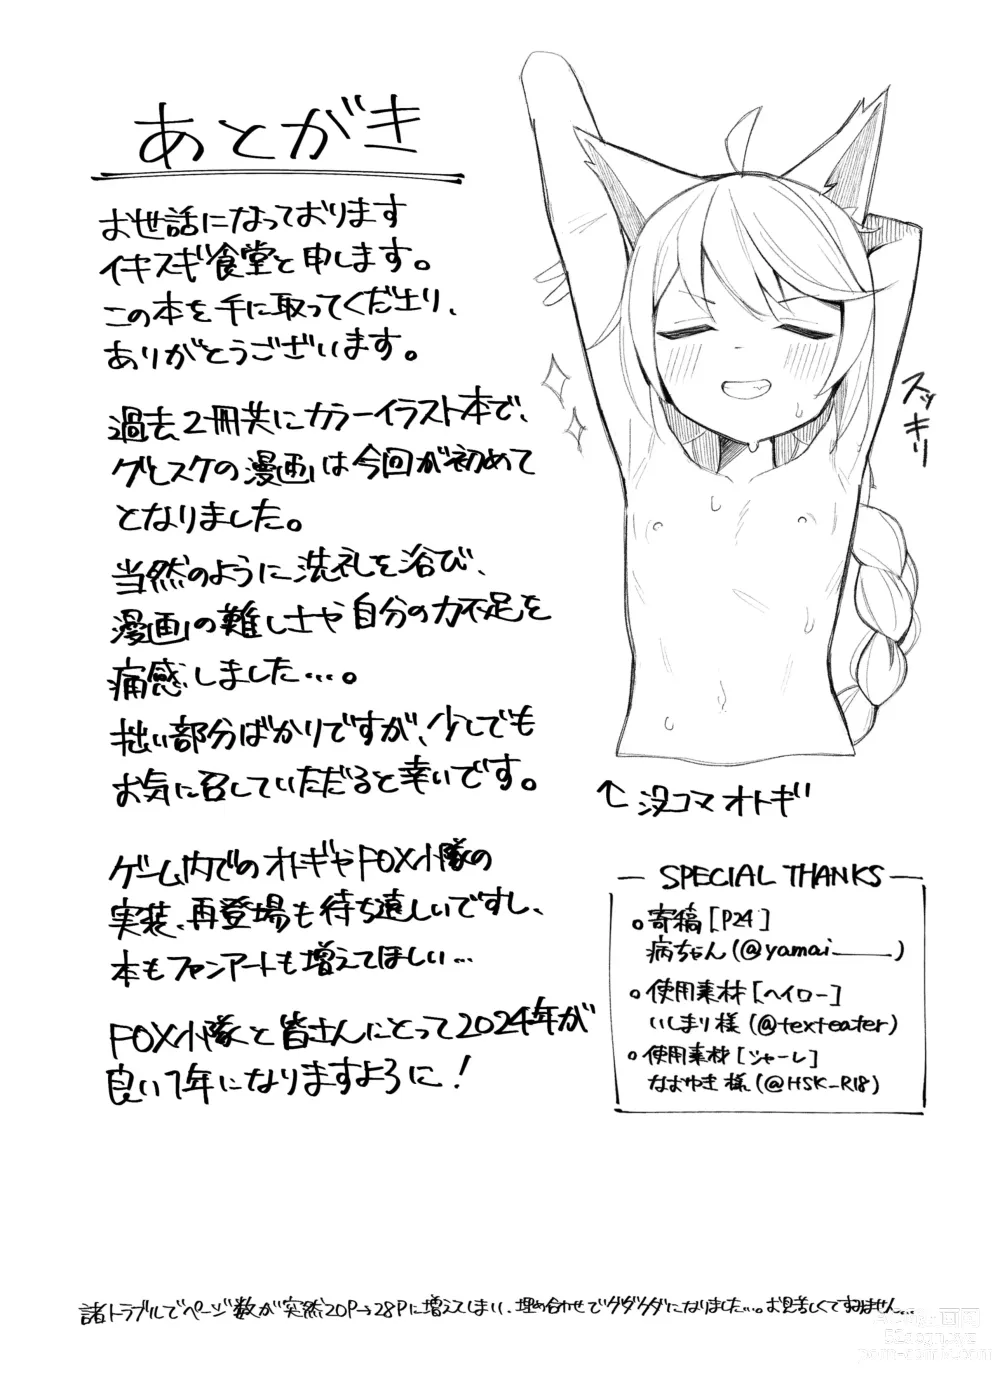 あとがき
お世話になっております
イキスギ食堂と申します。
この本を手に取ってくださり、
ありがとうございます。
過去2冊共にカラーイラスト本で、
グレスケの漫画は今回が初めて
となりました。
当然のように洗礼を浴び、
漫画の難しさや自分の力不足を
痛感しました...。
拙い部分ばかりですが、少しでも
お気に召していただだると幸いです。
ゲーム内でのオトギやFOX小隊の
実装、再登場も待ち遠しいですし、
本もファンアートも増えてほしい...
FOX小隊と皆さんにとって2024年が
良い1年になりますように!
スッキリ
↑没コマオトギ
SPECIAL THANKS
○寄稿[P24]
病ちゃん(@yamai____)
○使用素材[ヘイロー]
いしまり様(@texteater)
○使用素材[シャーレ]
なおゆき様(@HSK_R18)
諸トラブルでページ数が突然20P→28Pに増えてしまい、埋め合わせでグダグダになりました...。お見苦しくてすみません...
52cgzy.xyz
porn-comic.com